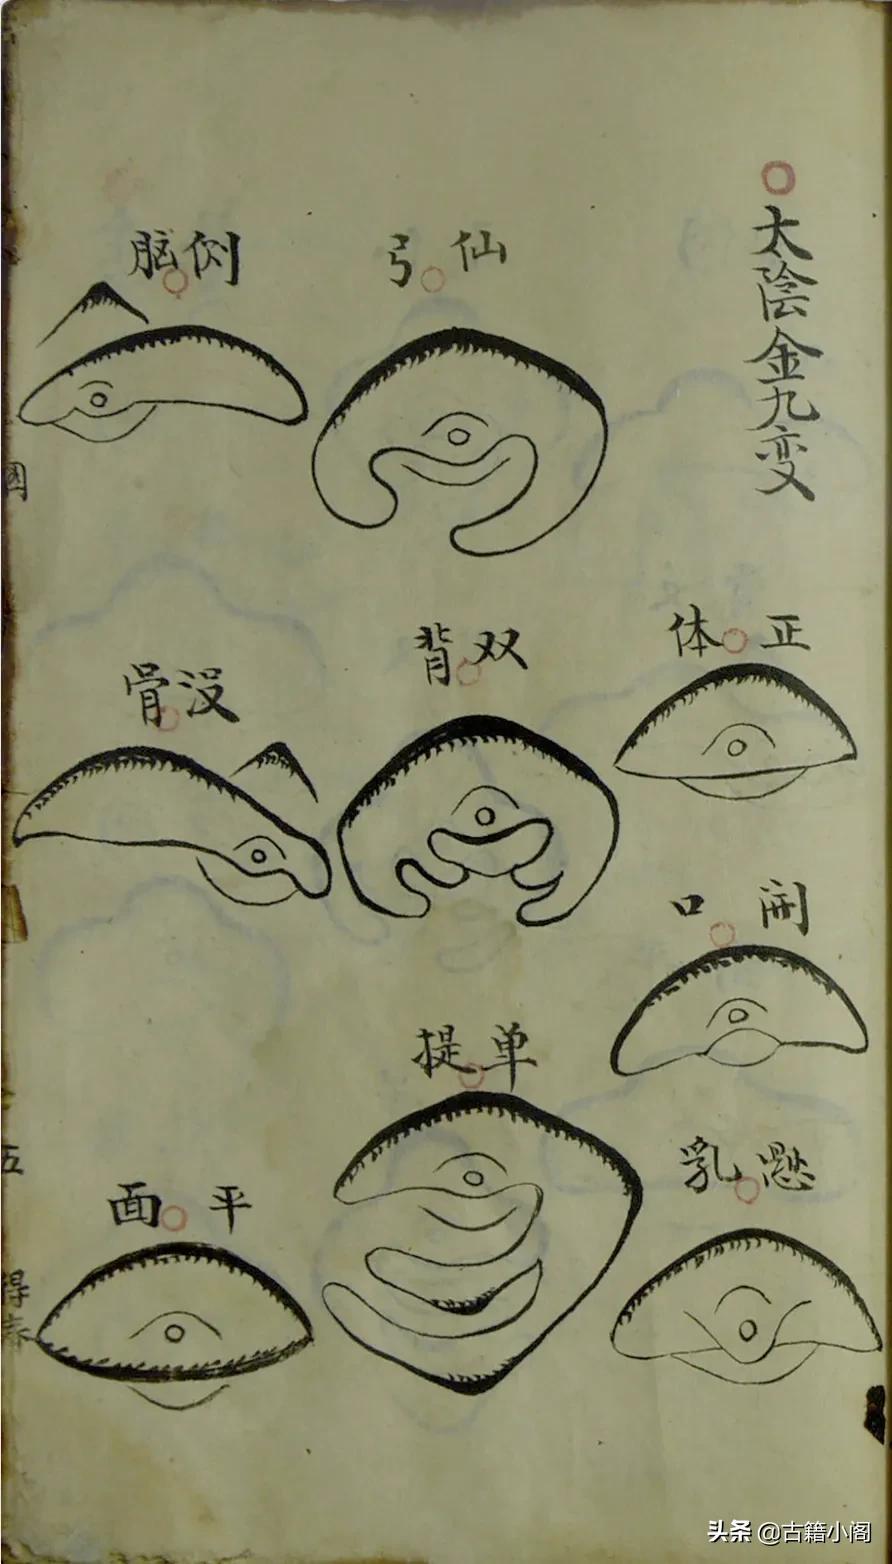 太陰金九变
正体
開口
懸乳
仙弓
双背
单提
侧脑
没骨
平面
五
得
头条 @古籍小阁